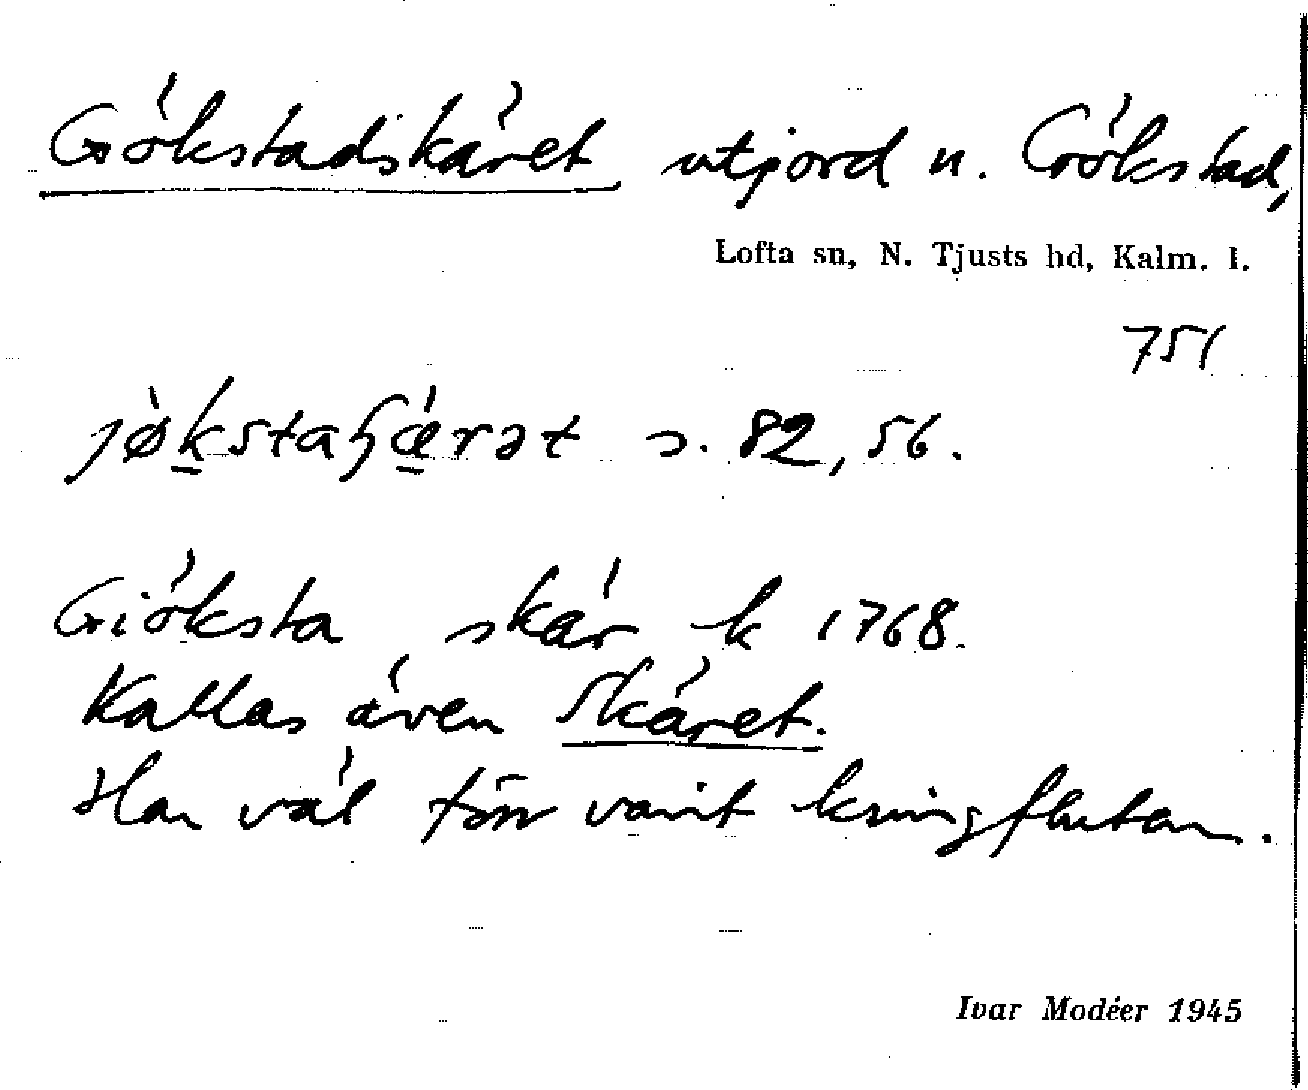 Gökstadskäret utjord u. Gökstad,
Lofta sn, N. Tjusts hd, Kalm. l.
751
jø̀k̠staɧǽ̠rət s. 82, 56.
Giöksta skär k 1768.
Kallas även Skäret.
Har väl förr varit kringfluten.
Ivar Modéer 1945